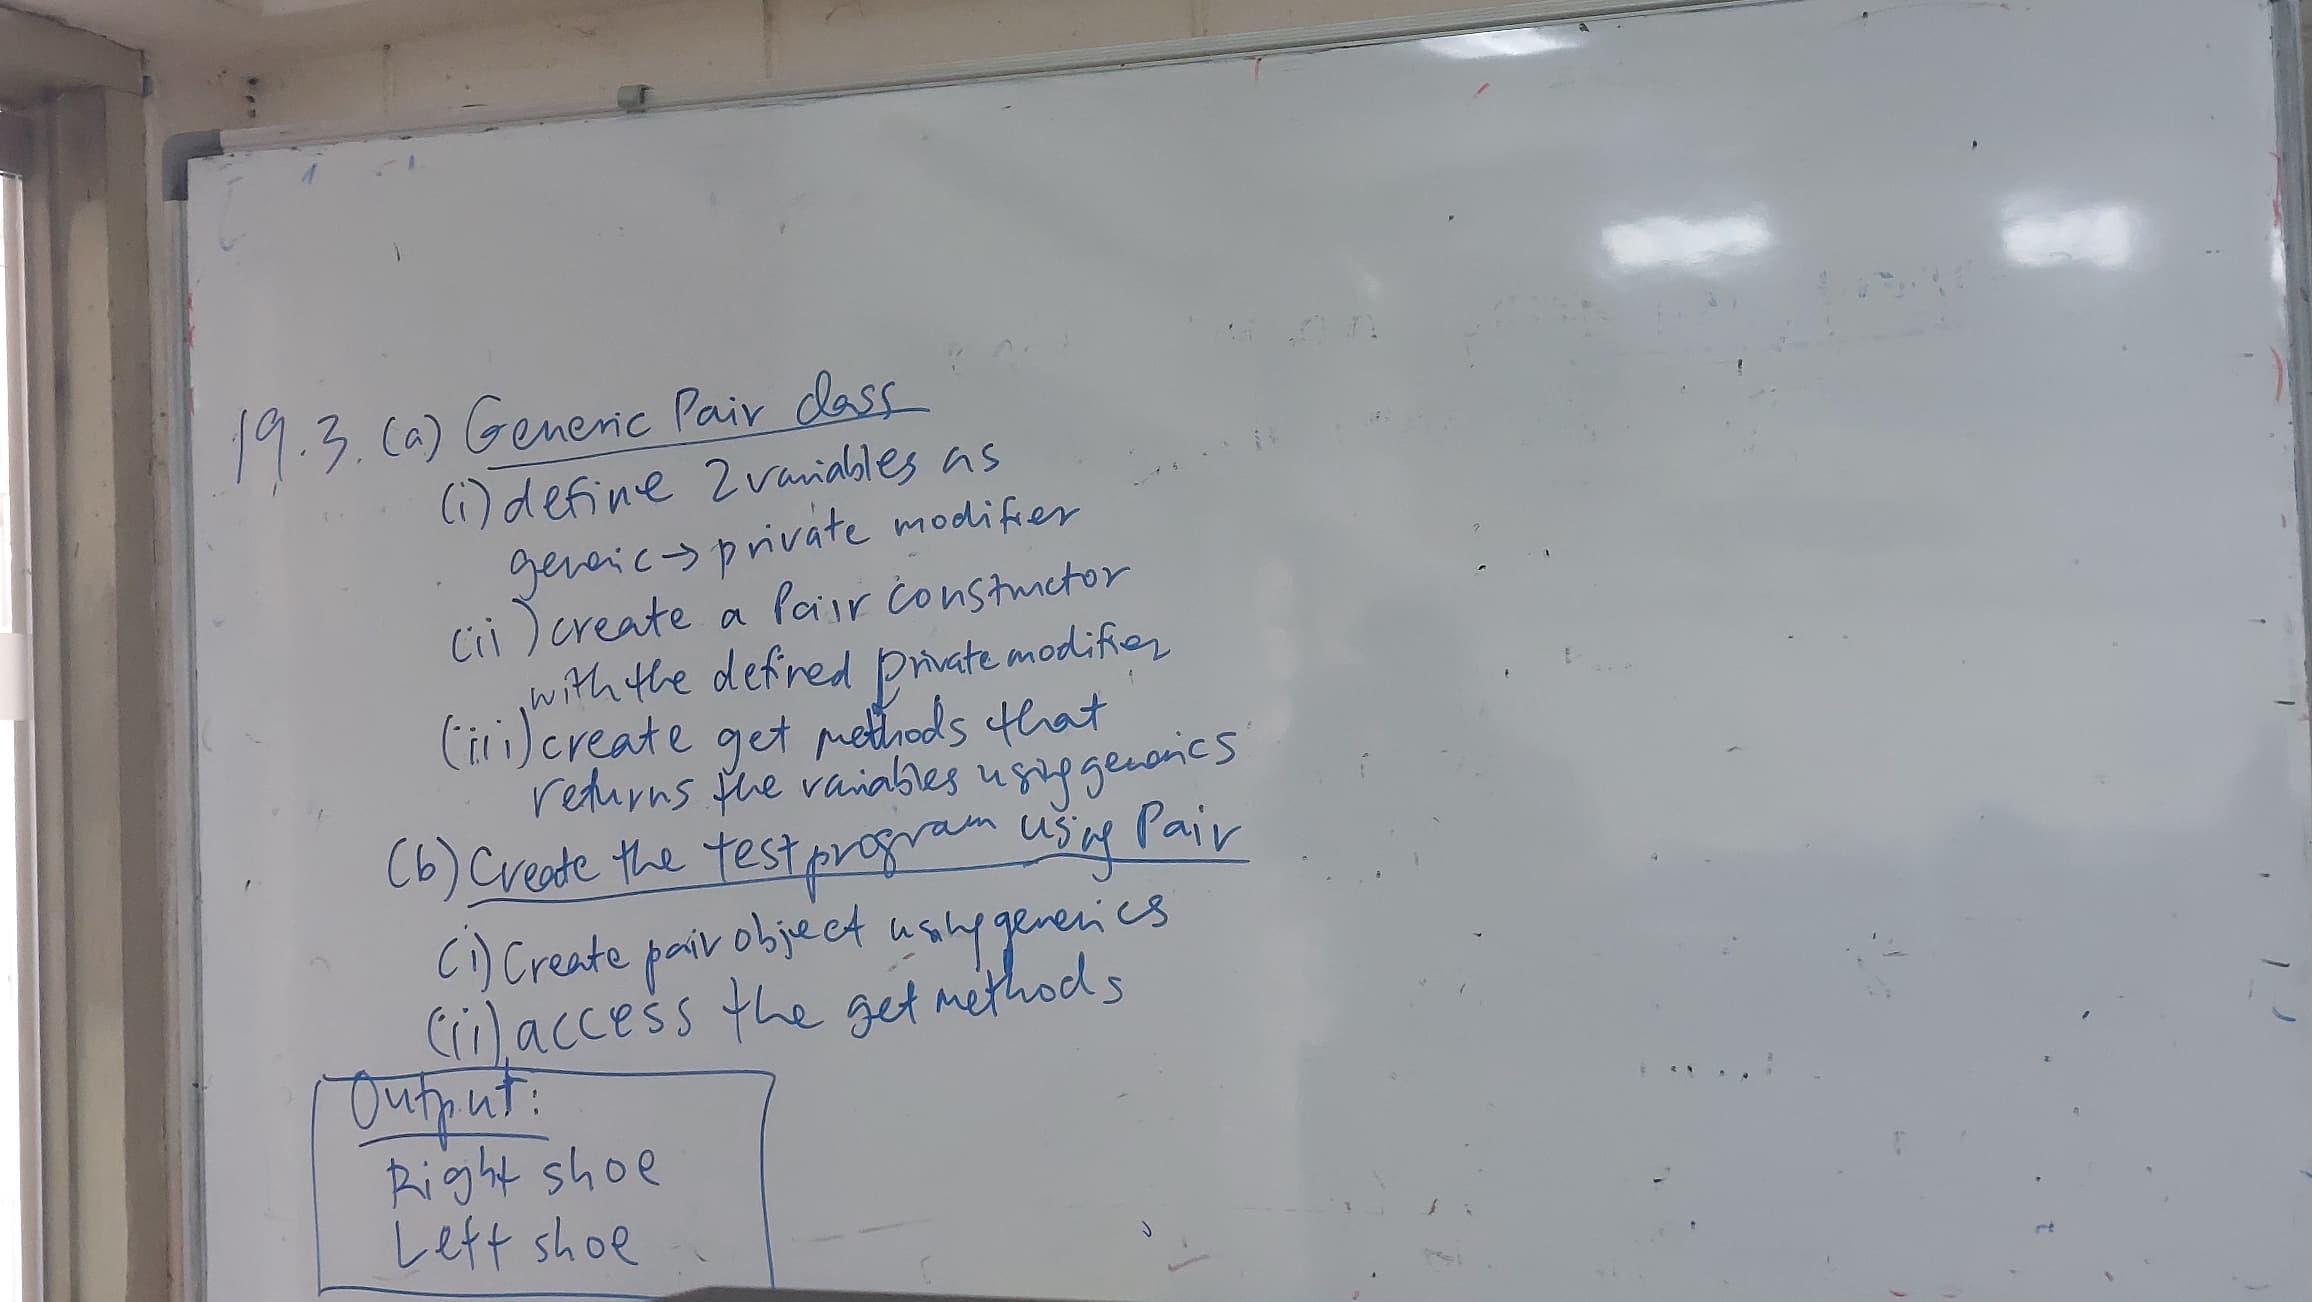 19.3. (a) Generic Pair class
(i) define 2 variables as
generic → private modifier
(ii) create a Pair constructor
with the defined private modifier
(iii) create get methods that
returns the variables using generics
(b) Create the test program using Pair
(i) Create pair object using generics
(ii) access the get methods
Output:
Right shoe
Left shoe